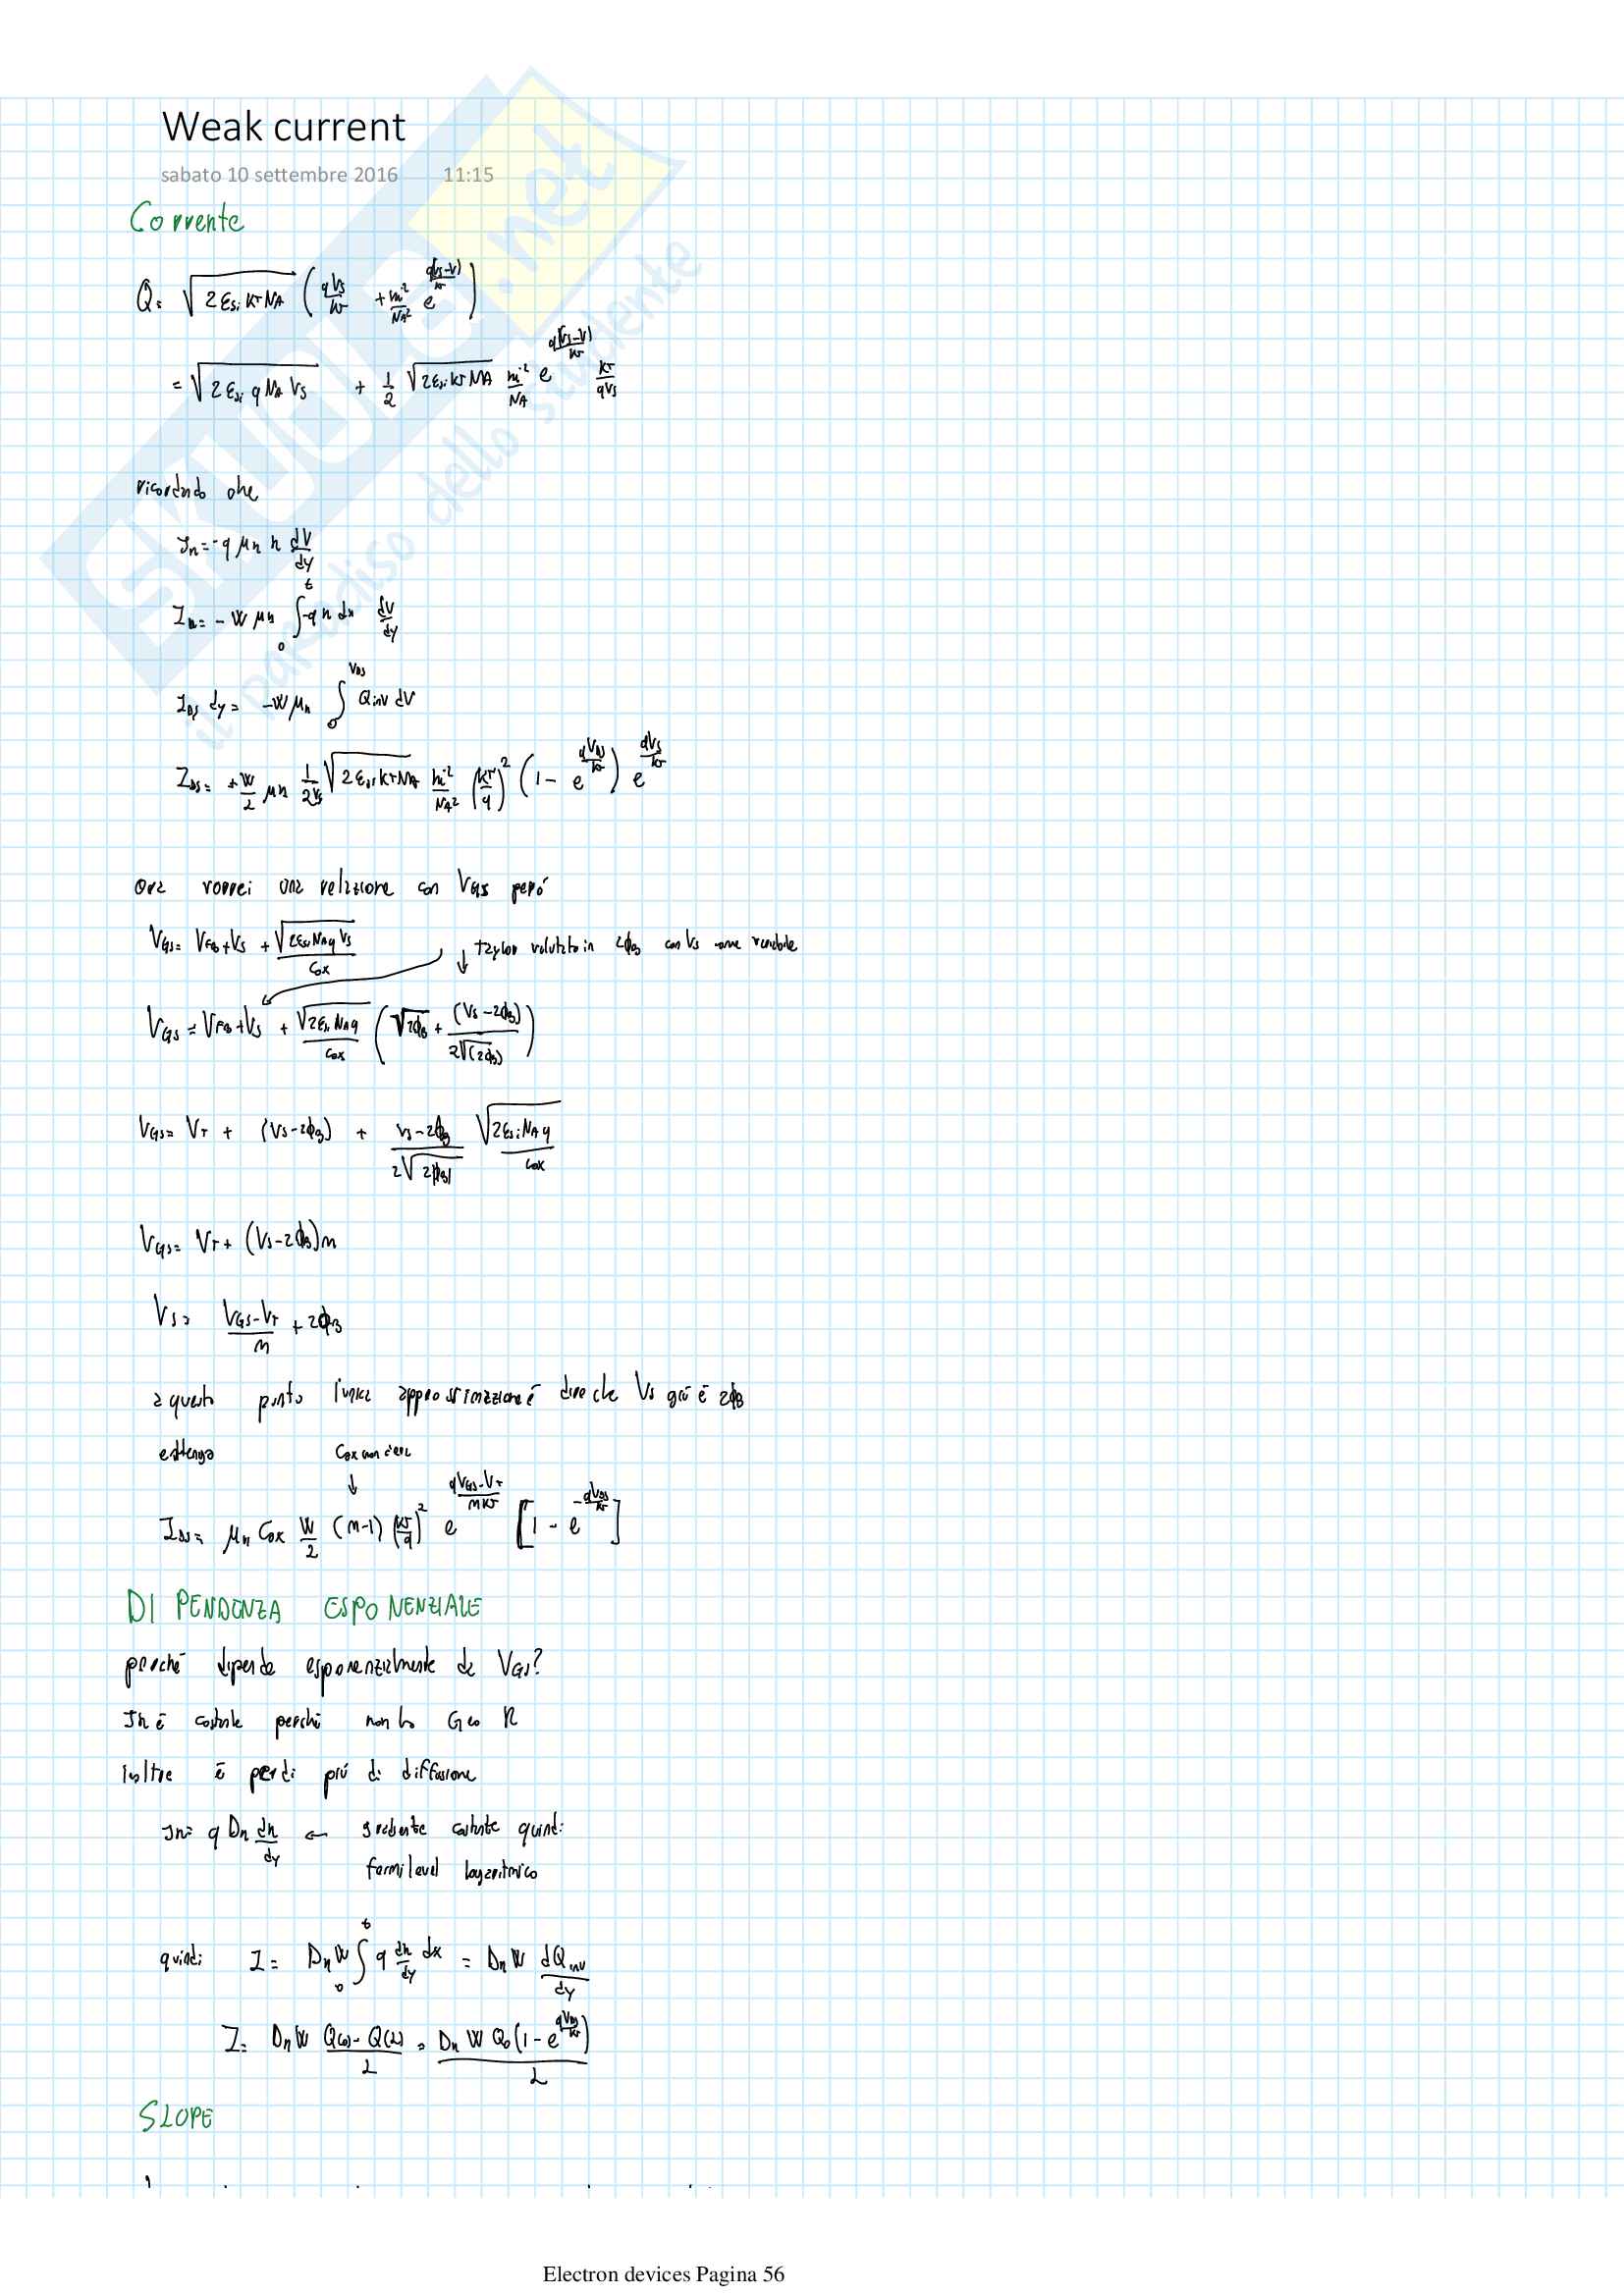 Weak current
sabato 10 settembre 2016 11:15
Corrente
Q = √(2 εsi KT NA) (qVs/KT + ni²/NA² e^(q(Vs-V)/KT))
= √(2 εsi q NA Vs) + 1/2 √(2εsi KT NA) ni²/NA e^(q(Vs-V)/KT) KT/qVs
ricordando che
Jn = -q μn n dV/dy
In = - W μn ∫₀ᵗ -q n dx dV/dy
IDS dy = -W μn ∫₀^VDS Qinv dV
IDS = +W/2 μn 1/2Vs √(2 εsi KT NA) ni²/NA² (KT/q)² (1 - e^(qVDS/KT)) e^(qVs/KT)
Ora vorrei una relazione con VGS però
VGS = VFB + Vs + √(2εsi NA q Vs)/Cox ↓ taylor valutato in 2ϕB con Vs come variabile
VGS = VFB + Vs + √(2εsi NA q)/Cox (√2ϕB + (Vs - 2ϕB)/2√(2ϕB))
VGS = VT + (Vs - 2ϕB) + Vs - 2ϕB/2√2ϕB √(2εsi NA q)/Cox
VGS = VT + (Vs - 2ϕB)m
Vs = VGS - VT/m + 2ϕB
a questo punto l'unica approssimazione è dire che Vs già è 2ϕB
e ottengo Cox non c'era
↓
IDS = μn Cox W/2 (m-1) (KT/q)² e^(qVGS-VT/mKT) [1 - e^(-qVDS/KT)]
DIPENDENZA ESPONENZIALE
perché dipende esponenzialmente da VGS?
Jn è costante perché non ho G o R
Inoltre è per di più di diffusione
Jn = q Dn dn/dy ← gradiente costante quindi
fermi level logaritmico
quindi I = Dn W ∫₀ᵗ q dn/dy dx = Dn W dQinv/dy
I = Dn W Q(0) - Q(L)/L = Dn W Q0 (1 - e^(qVDS/KT))/L
SLOPE
Electron devices Pagina 56
SKUOLA.net
il paradiso dello studente